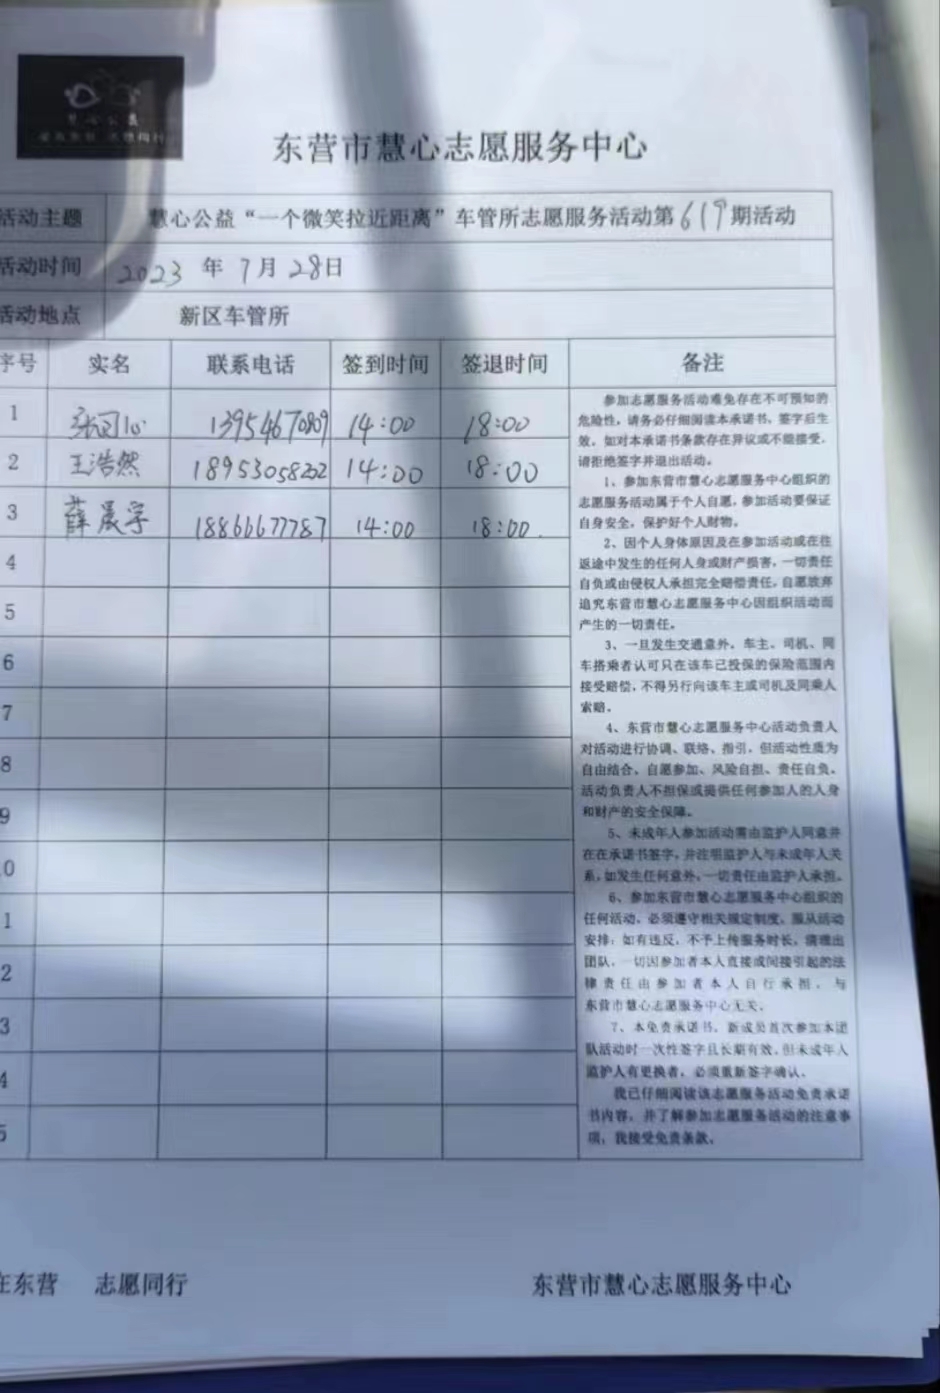 慧心公益
东营市慧心志愿服务中心
活动主题 慧心公益“一个微笑拉近距离”车管所志愿服务活动第619期活动
活动时间 2023 年 7 月 28日
活动地点 新区车管所
序号 实名 联系电话 签到时间 签退时间 备注
1 13954670809 14:00 18:00
2 王浩然 18953058202 14:00 18:00
3 薛晨宇 18866677787 14:00 18:00
4
5
6
7
8
9
0
1
2
3
4
5
参加志愿服务活动难免存在不可预知的
危险性，请务必仔细阅读本承诺书，签字后生
效。如对本承诺书条款存在异议或不能接受，
请拒绝签字并退出活动。
1、参加东营市慧心志愿服务中心组织的
志愿服务活动属于个人自愿，参加活动要保证
自身安全，保护好个人财物。
2、因个人身体原因及在参加活动或在往
返途中发生的任何人身或财产损害，一切责任
自负或由侵权人承担完全赔偿责任，自愿放弃
追究东营市慧心志愿服务中心因组织活动而
产生的一切责任。
3、一旦发生交通意外，车主、司机、同
车搭乘者认可只在该车已投保的保险范围内
接受赔偿，不得另行向该车主或司机及同乘人
索赔。
4、东营市慧心志愿服务中心活动负责人
对活动进行协调、联络、指引，但活动性质为
自由结合、自愿参加、风险自担、责任自负。
活动负责人不担保或提供任何参加人的人身
和财产的安全保障。
5、未成年人参加活动需由监护人同意并
在在承诺书签字，并注明监护人与未成年人关
系，如发生任何意外，一切责任由监护人承担。
6、参加东营市慧心志愿服务中心组织的
任何活动，必须遵守相关规定制度，服从活动
安排；如有违反，不予上传服务时长，清理出
团队，一切因参加者本人直接或间接引起的法
律责任由参加者本人自行承担，与
东营市慧心志愿服务中心无关。
7、本免责承诺书，新成员首次参加本团
队活动时一次性签字且长期有效，但未成年人
监护人有更换者，必须重新签字确认。
我已仔细阅读该志愿服务活动免责承诺
书内容，并了解参加志愿服务活动的注意事
项，我接受免责条款。
在东营 志愿同行 东营市慧心志愿服务中心